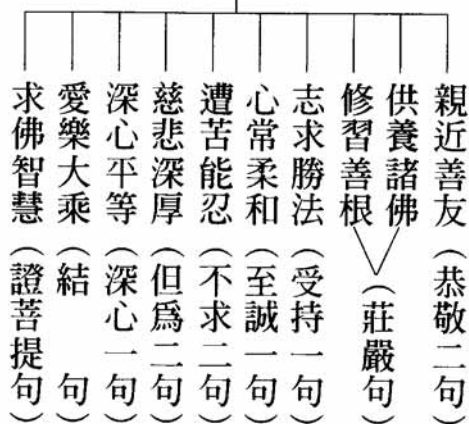 親近善友（恭敬二句）
供養諸佛
修習善根
（莊嚴句）
志求勝法（受持一句）
心常柔和（至誠一句）
遭苦能忍（不求二句）
慈悲深厚（但爲二句）
深心平等（深心一句）
愛樂大乘（結　句）
求佛智慧（證菩提句）